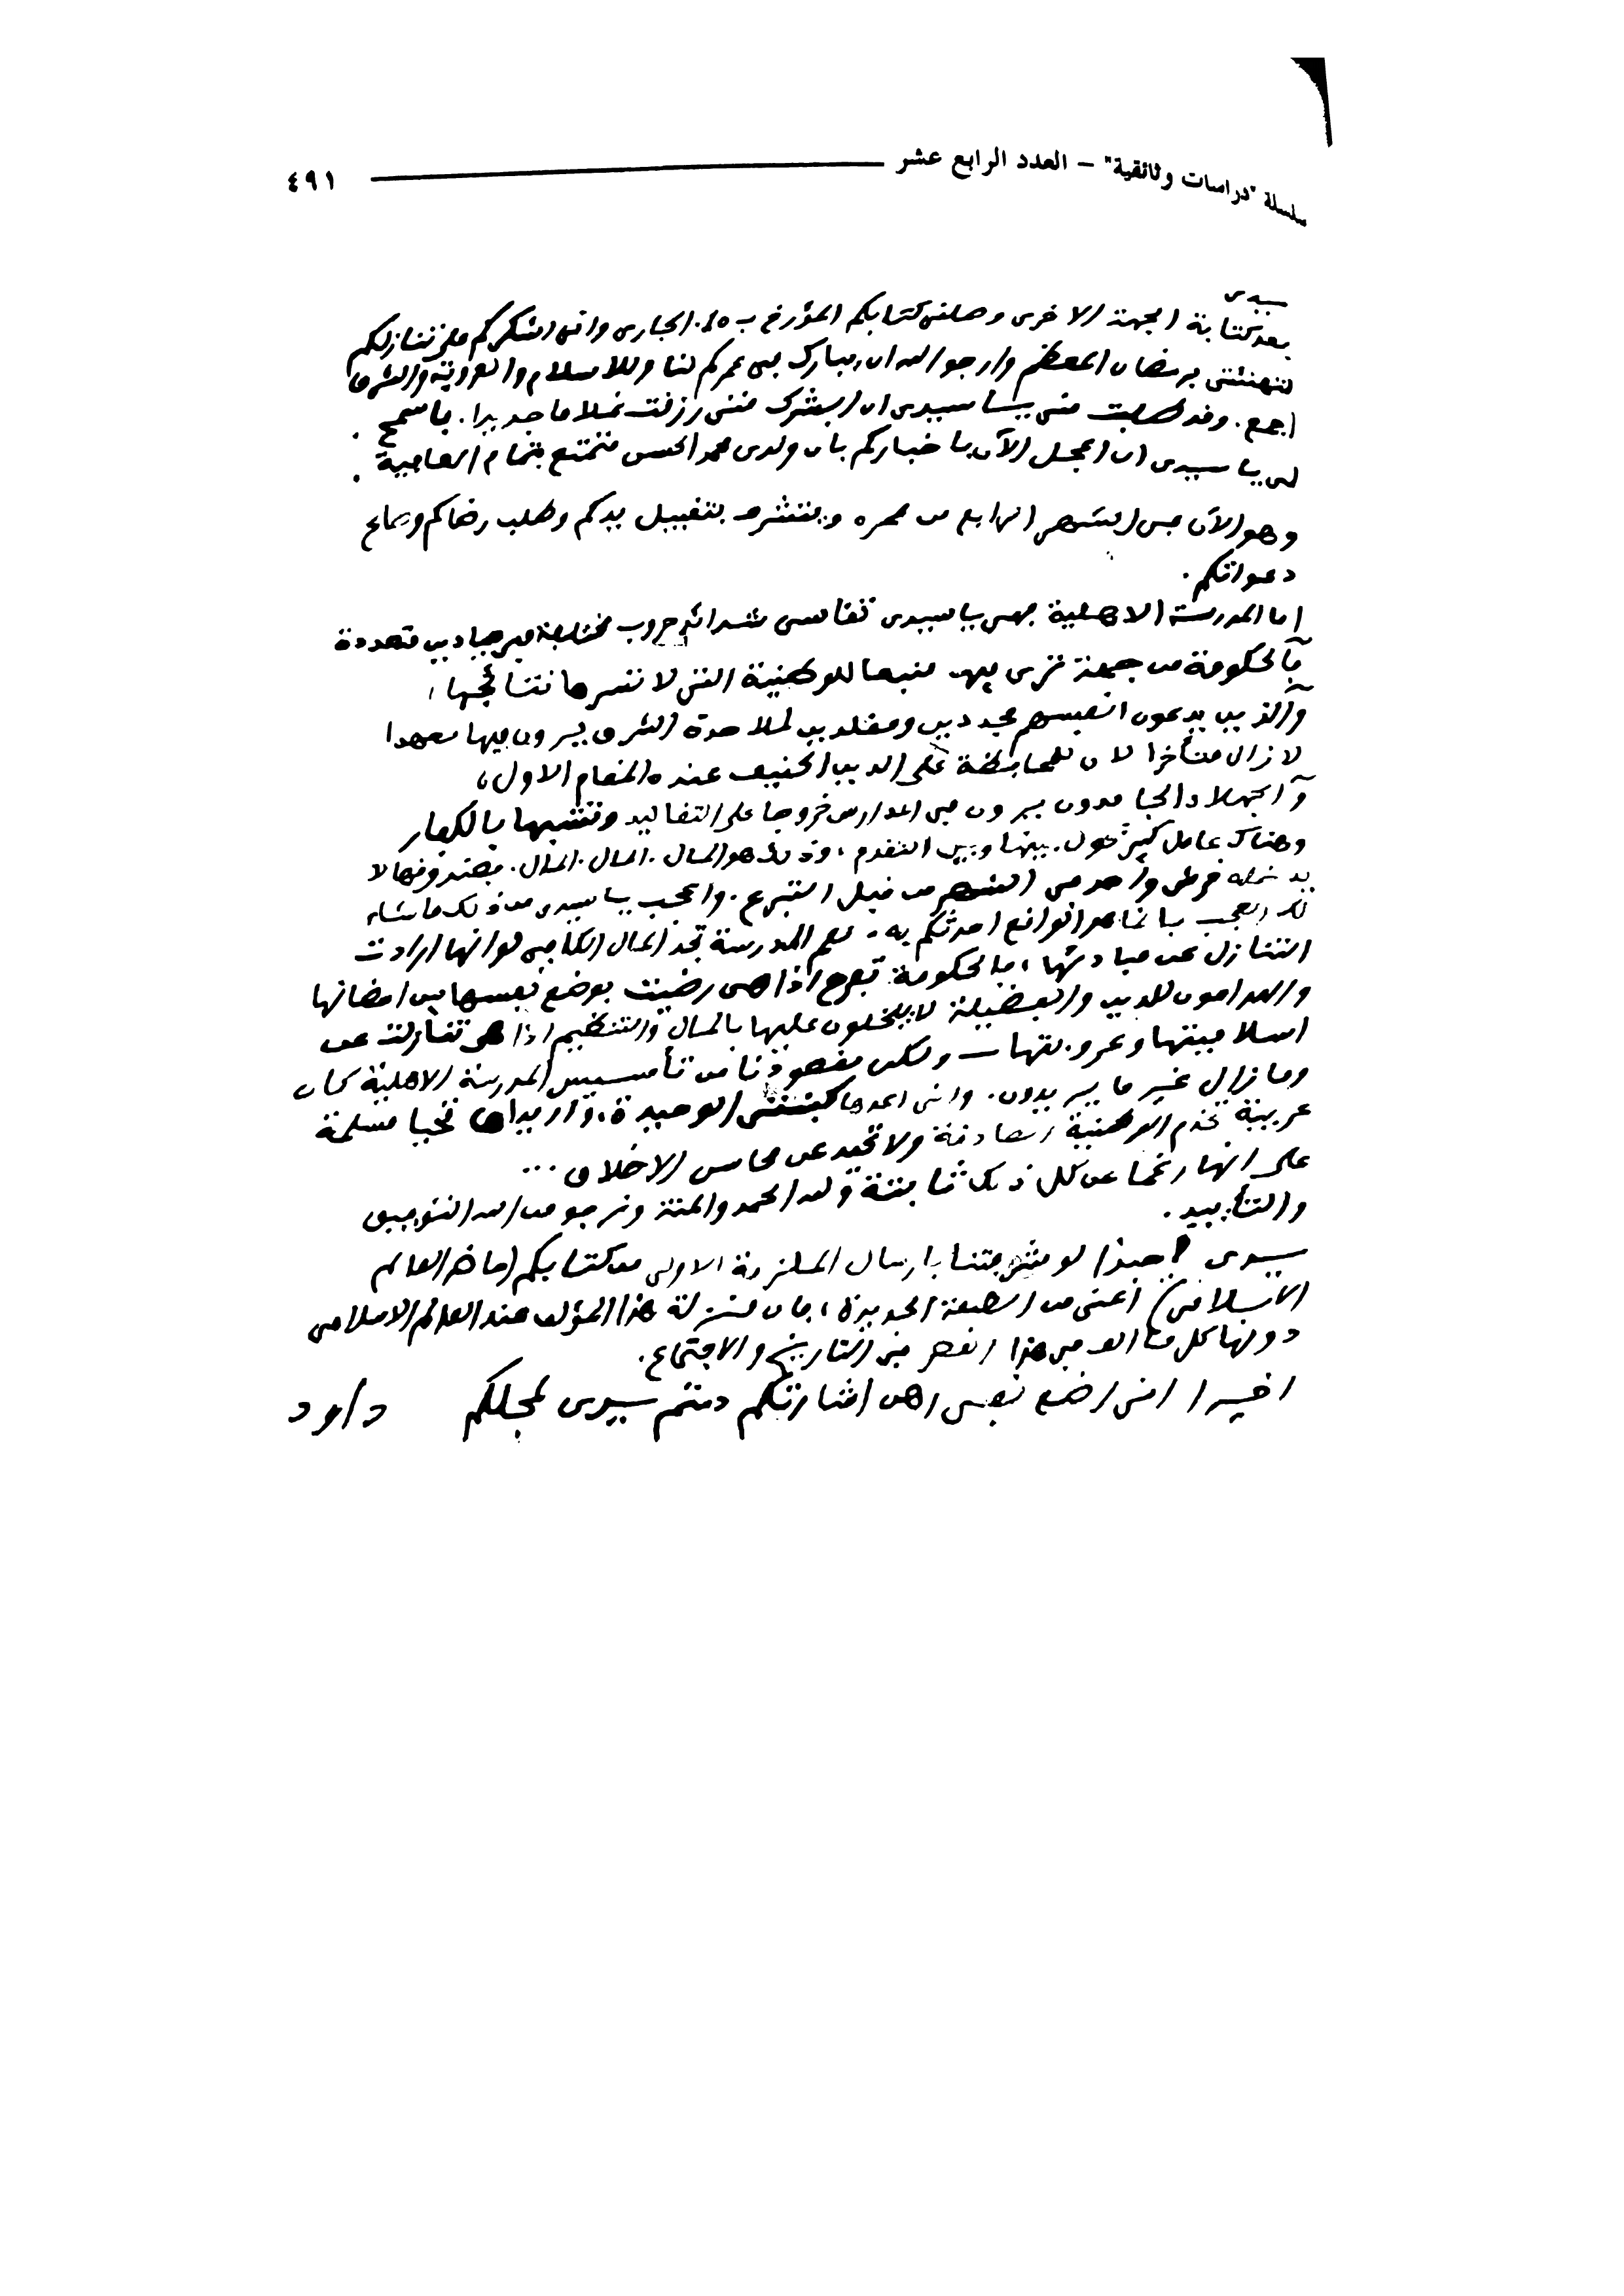 سلسلة "دراسات وثائقية" – العدد الرابع عشر ٤٩١
سيدى
بعد كتابة الجهة الاخرى وصلنى كتابكم المؤرخ ب ١٥ الجارى وانى اشكركم على تنازلكم
لتهنئتى برمضان المعظم وارجو الله ان يبارك فى عمركم لنا وللاسلام والعروبة والشرق
اجمع. وقد طلبت منى يا سيدى ان ابشرك متى رزقت نجلا ماجدا. فاسمح
لى يا سيدى ان اعجل الآن باخباركم بان ولدى محمد الحسن متمتع بتمام العافية.
وهو الآن فى الشهر الرابع من عمره ويتشرف بتقبيل يدكم وطلب رضاكم وصالح
دعواتكم.
اما المدرسة الاهلية فهى يا سيدى تقاسى شدائد حروب مختلفة فى ميادين متعددة
فالحكومة من جهة ترى فيها منبعا للوطنية التى لا تسرها نتائجها،
والذين يدعون انفسهم مجددين ومقلدين لملاحدة الشرق يرون فيها معهدا
لا زال متأخرا لان للمحافظة على الدين الحنيف عنده المقام الاول،
والجهلاء الجامدون يرون فى المدارس خروجا على التقاليد وتشبها بالكفار
وهناك عامل كبير يحول بينها وبين التقدم، وذلك هو المال. المال. المال. فصندوقها لا
يدخله قرش واحد فى الشهر من قبل التبرع. واعجب يا سيدى من ذلك ما شاء
لك العجب فانما هو الواقع احدثكم به. نعم المدرسة تجد المال الكافى لو انها ارادت
التنازل عن مبادئها، فالحكومة تفرح اذا هى رضيت بوضع نفسها فى احضانها
والهدامون للدين والفضيلة لا يبخلون عليها بالمال والتنظيم اذا هى تنازلت عن
اسلاميتها وعروبتها — ولكن مقصودنا من تأسيس المدرسة الاهلية كان
وما زال غير ما يريدون. وانى اعدها كبنتى الوحيدة، واريدها تحيا مسلمة
عربية تخدم الوطنية الصادقة ولا تحيد عن محاسن الاخلاق ...
على انها رغما عن كل ذلك ثابتة ولله الحمد والمنة ونرجو من الله التوفيق
والتأييد.
سيدى حبذا لو شرفتنا بارسال الملزمة الاولى من كتابكم (حاضر العالم
الاسلامى) اعنى من الطبعة الجديدة، فان منزلة هذا المؤلف عند العالم الاسلامى
دونها كل ما الف فى هذا العصر فى التاريخ والاجتماع.
اخيرا انى اضع نفسى رهن اشارتكم دمتم سيدى لمجلكم داود